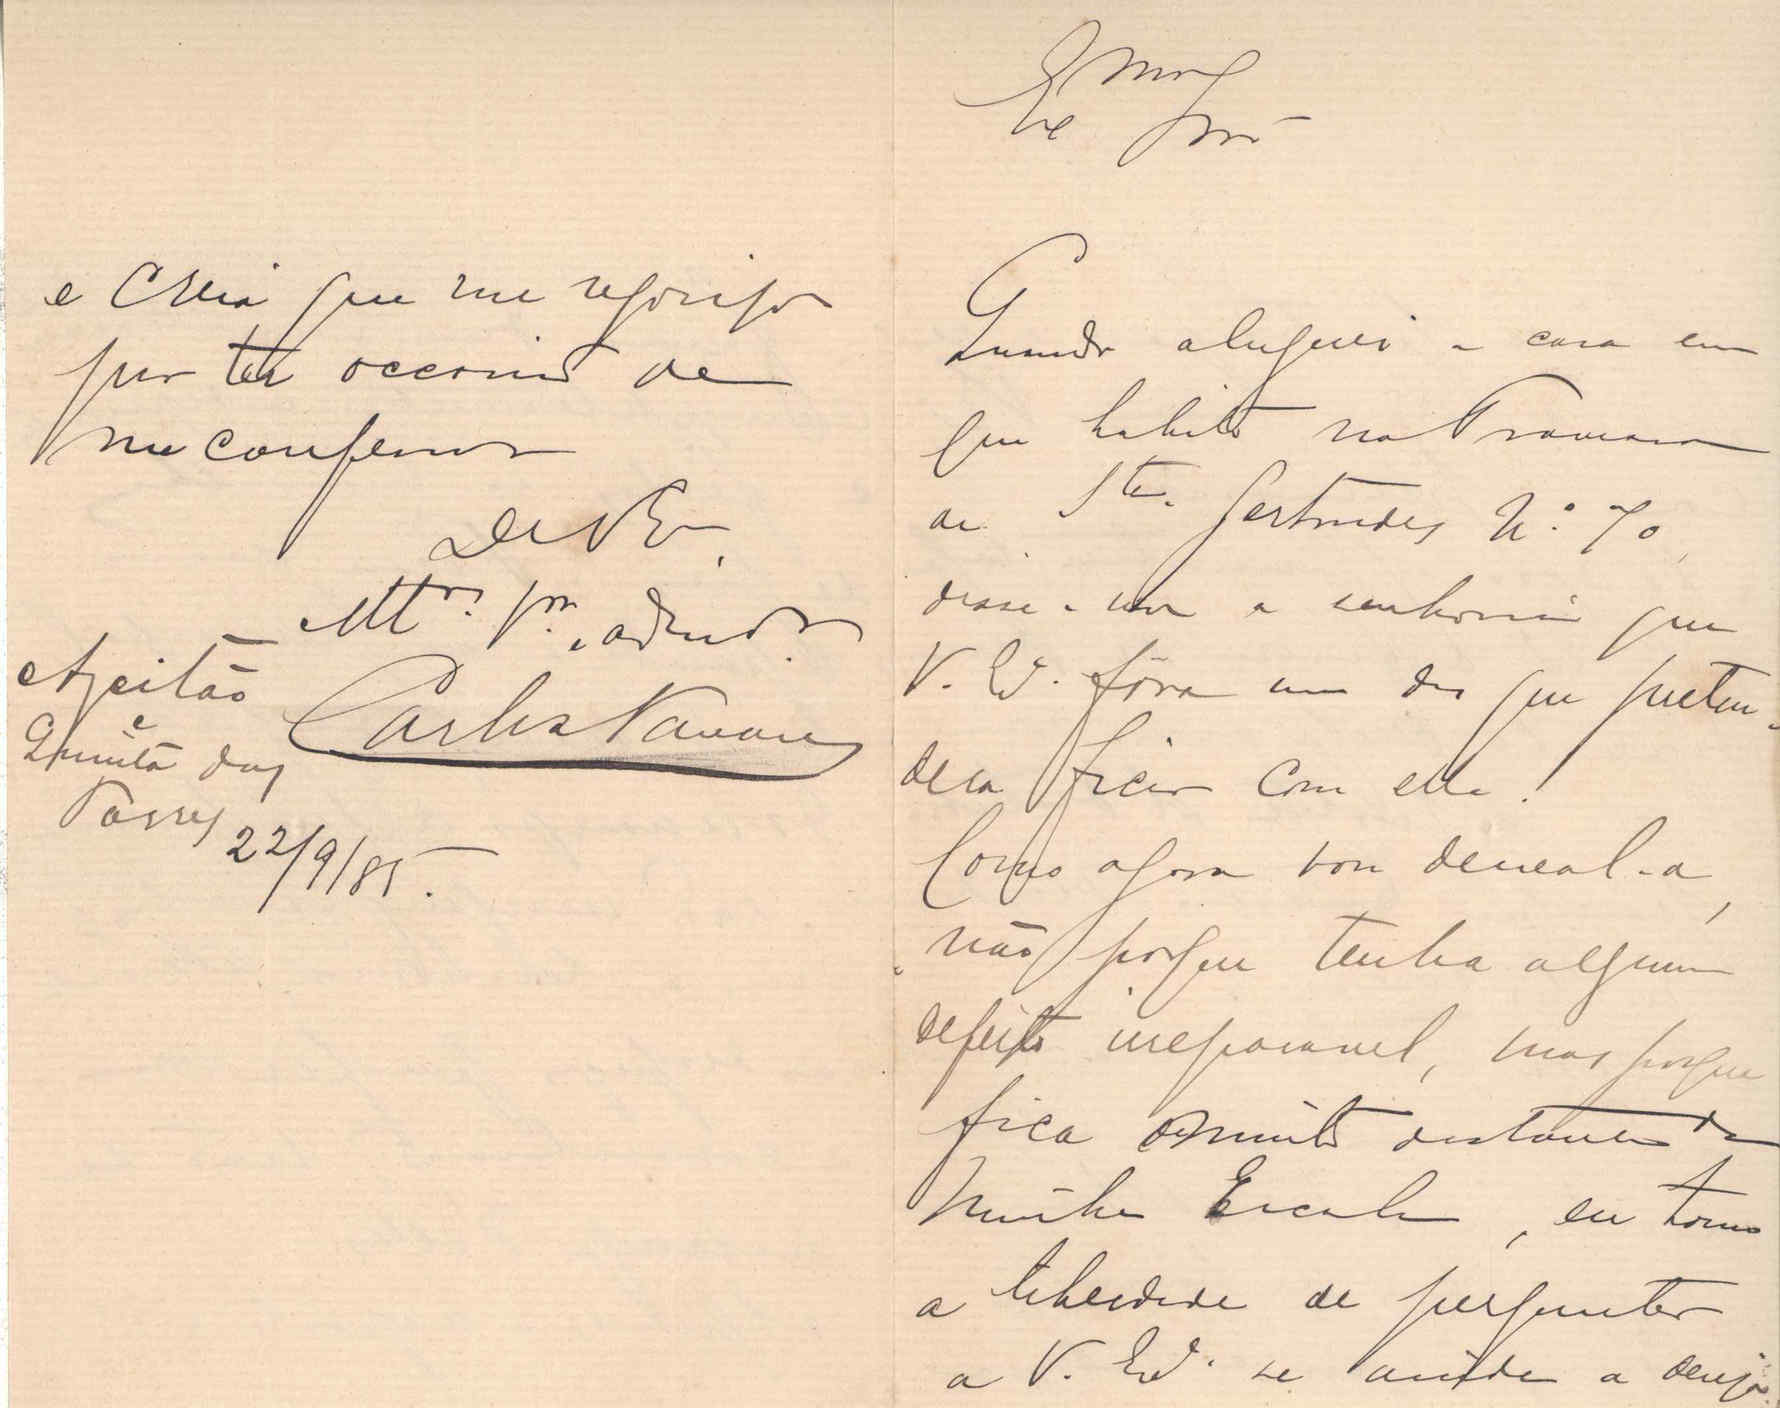 Exmo
Snr
Quando aluguei a casa em
que habito na Travessa
de Sta. Gertrudes Nº 70,
disse-me a senhoria que
V. Exª. fôra um dos que preten-
dera ficar com ella!
Como agora vou deixal-a,
não porque tenha algum
defeito irreparavel, mas porque
fica muito distante da
minha Escola, eu tomo
a liberdade de perguntar
a V. Exª. se ainda a deseja
e creia que me regosijo
por ter occasião de
me confessar
De V. Ex.
Mto. Vor. e
Carlos Tavares
Azeitão
Quinta das
Torres
22/9/85.